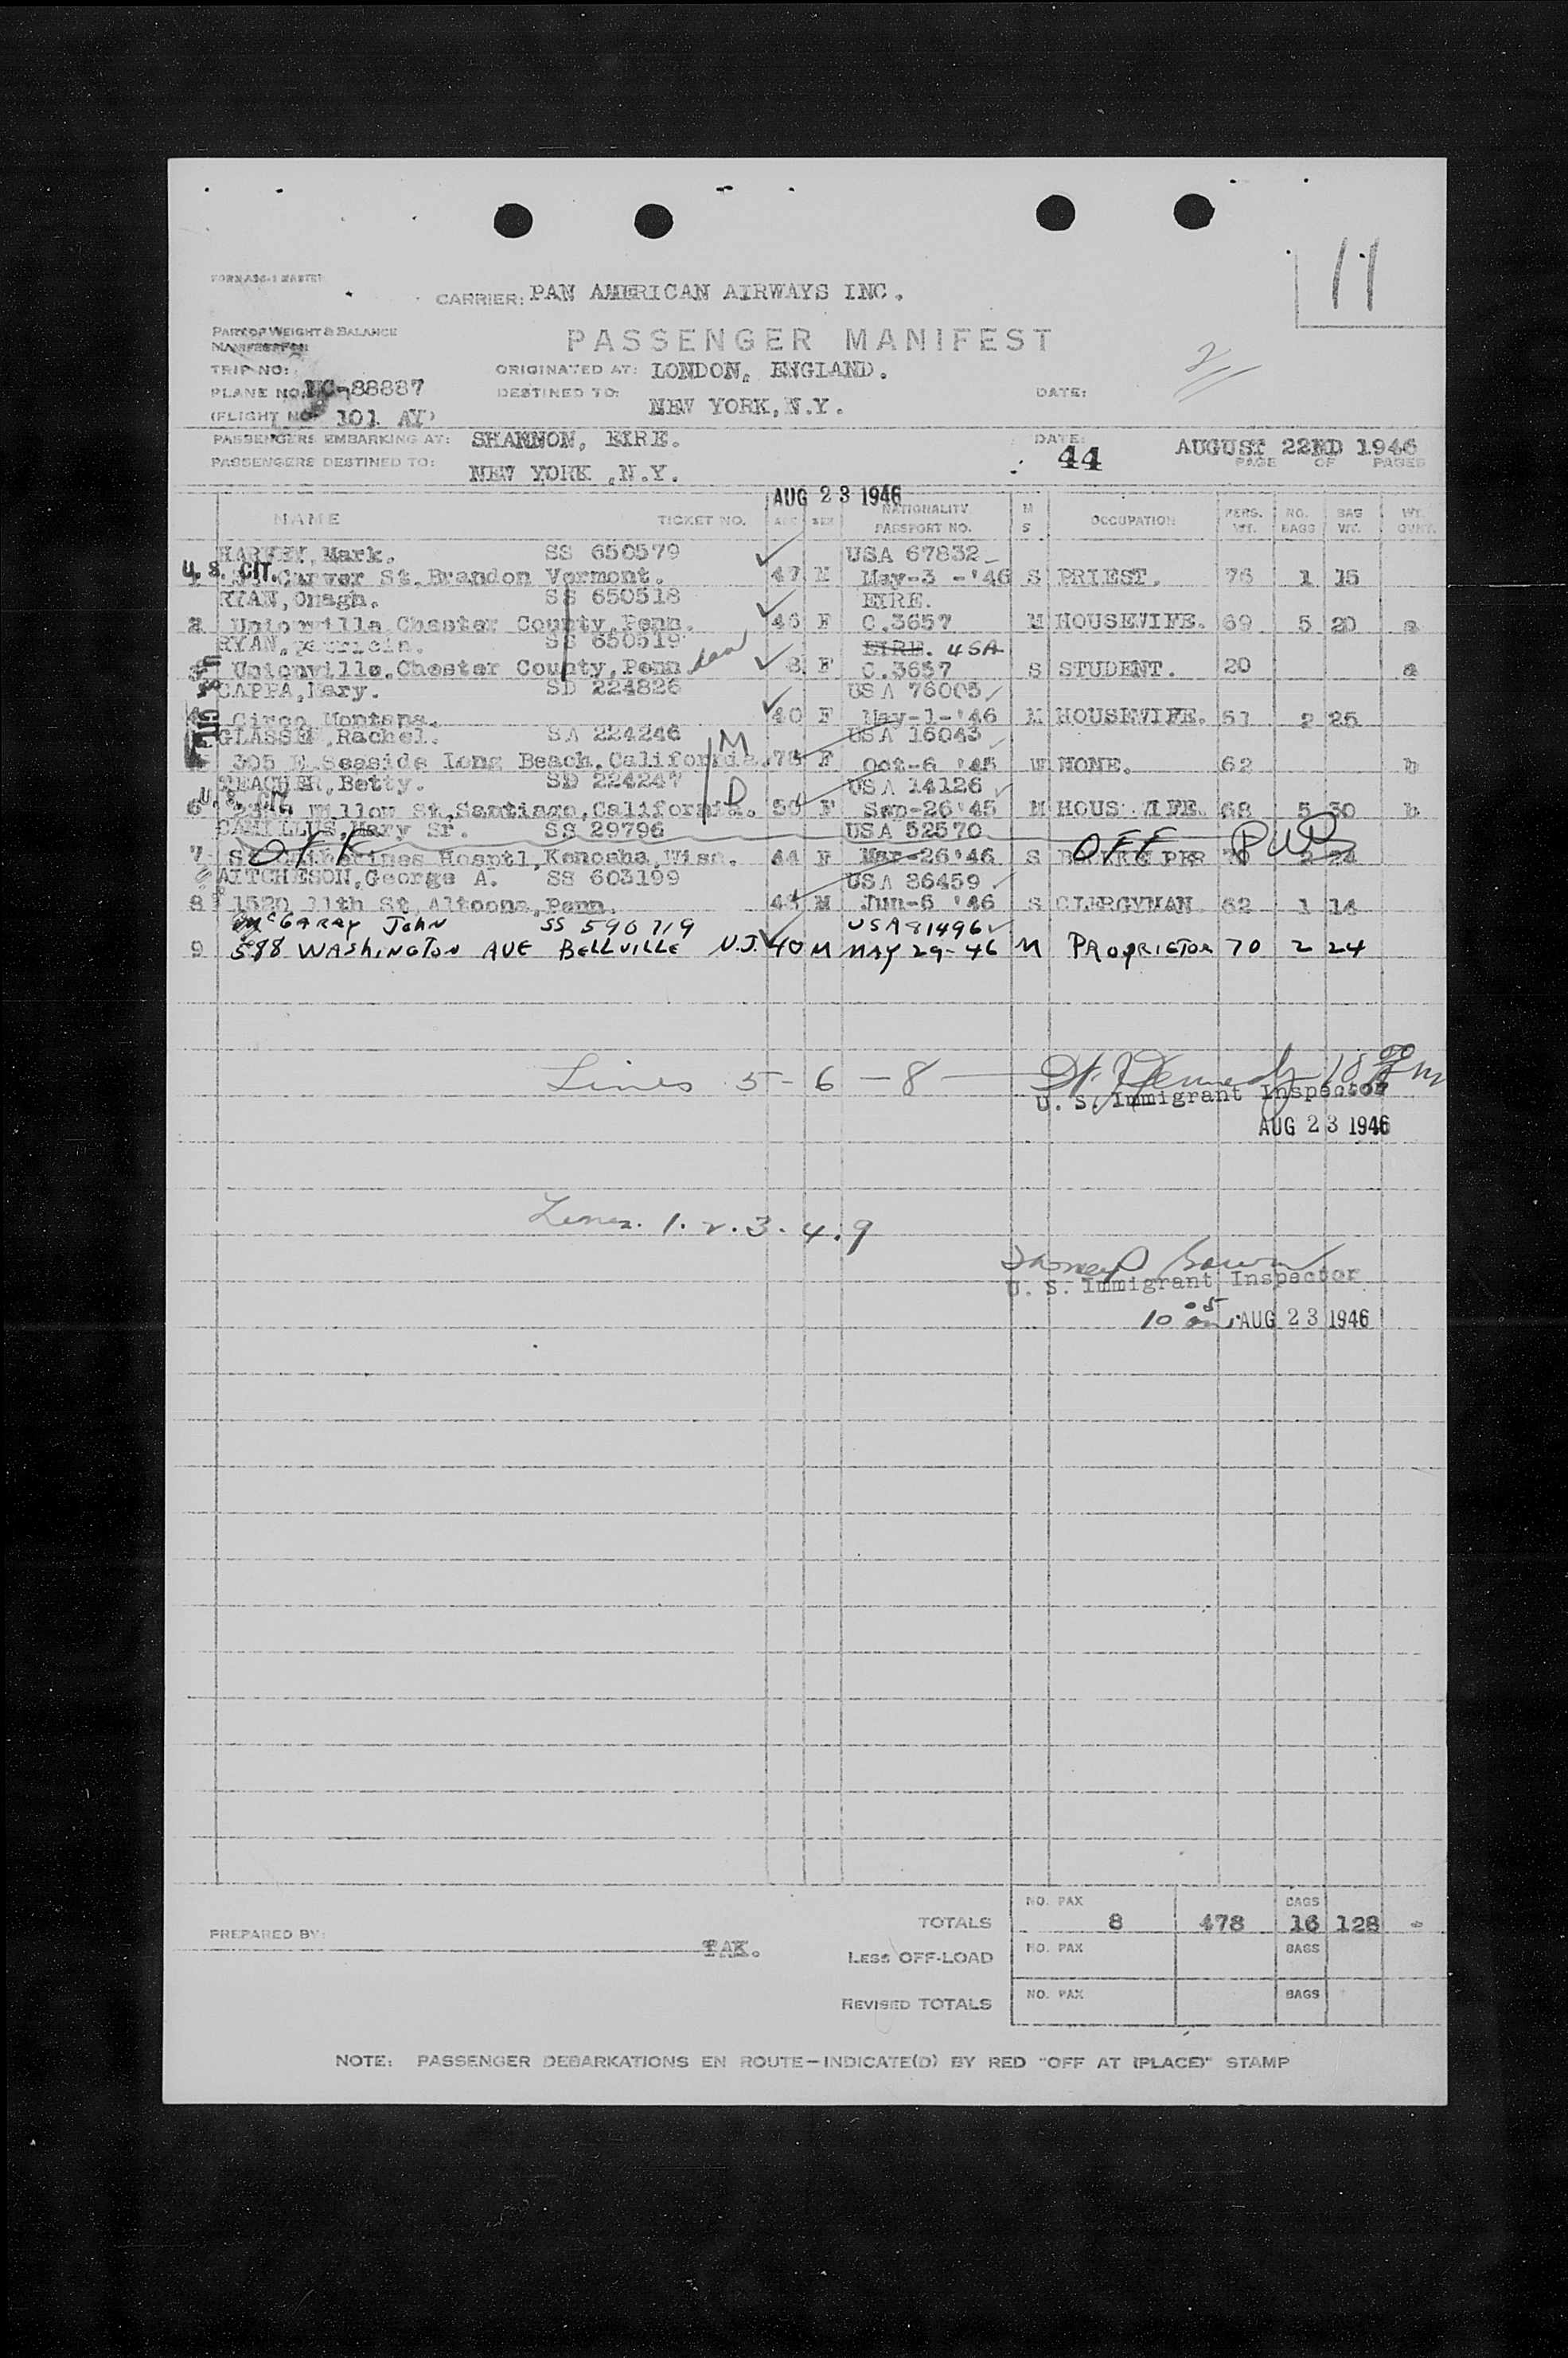 11
FORM
CARRIER: PAN AMERICAN AIRWAYS INC.
PART OF WEIGHT & BALANCE
PASSENGER MANIFEST
TRIP NO:
ORIGINATED AT: LONDON, ENGLAND.
PLANE NO. NC-88887
DESTINED TO: NEW YORK, N.Y.
DATE:
(FLIGHT NO. 101 AY)
PASSENGERS EMBARKING AT: SHANNON, EIRE.
DATE: AUGUST 22ND 1946
PASSENGERS DESTINED TO: NEW YORK ,N.Y.
44
PAGE OF PAGES
AUG 23 1946
NAME TICKET NO. AGE SEX NATIONALITY PASSPORT NO. M S OCCUPATION PERS. WT. NO. BAGS BAG WT. WT. GVNT.
HARVEY, Mark. SS 650579 USA 67832
U. S. CIT. Carver St. Brandon Vermont. 47 M May-3 -'46 S PRIEST. 76 1 15
RYAN, Onagh. SS 650518 EIRE.
2 Unionville. Chester County, Penn. 46 F C.3657 M HOUSEWIFE. 69 5 20 a
RYAN, Patricia. SS 650519 EIRE. USA
3 Unionville. Chester County, Penn. 8 F C.3657 S STUDENT. 20 a
CAPPA, Mary. SD 224826 USA 76005
Circo Montana. 40 F May-1-'46 M HOUSEWIFE. 51 2 25
Rachel. SA 224246 USA 16043
305 E. Seaside Long Beach. California. 78 F Oct-6 '45 W NONE. 62 b
M
Betty. SD 224247 USA 14126
D
6 U. S. CIT. Willow St, Santiago, California. 50 F Sep-26'45 M HOUSEWIFE. 68 5 30 b
CAMILLUS, Mary Sr. SS 29796 USA 52570
OFF OFF
7 Hosptl, Kenosha, Wisn. 44 F Mar-26'46 S 70 2 24
AITCHESON, George A. SS 603199 USA 86459
8 1520 11th St, Altoona, Penn. 44 M Jun-5 '46 S CLERGYMAN. 62 1 14
McGARRY John SS 590719 USA 81496
9 588 WASHINGTON AVE BELLVILLE N.J. 40 M MAY 29-46 M PROPRIETOR 70 2 24
Lines 5 - 6 - 8
U. S. Immigrant Inspector
AUG 23 1946
Lines. 1. 2. 3. 4. 9
U. S. Immigrant Inspector
10 05 AUG 23 1946
TOTALS NO. PAX 8 478 BAGS 16 128 -
PREPARED BY: PAX.
LESS OFF-LOAD NO. PAX BAGS
REVISED TOTALS NO. PAX BAGS
NOTE: PASSENGER DEBARKATIONS EN ROUTE—INDICATE(D) BY RED "OFF AT (PLACE)" STAMP